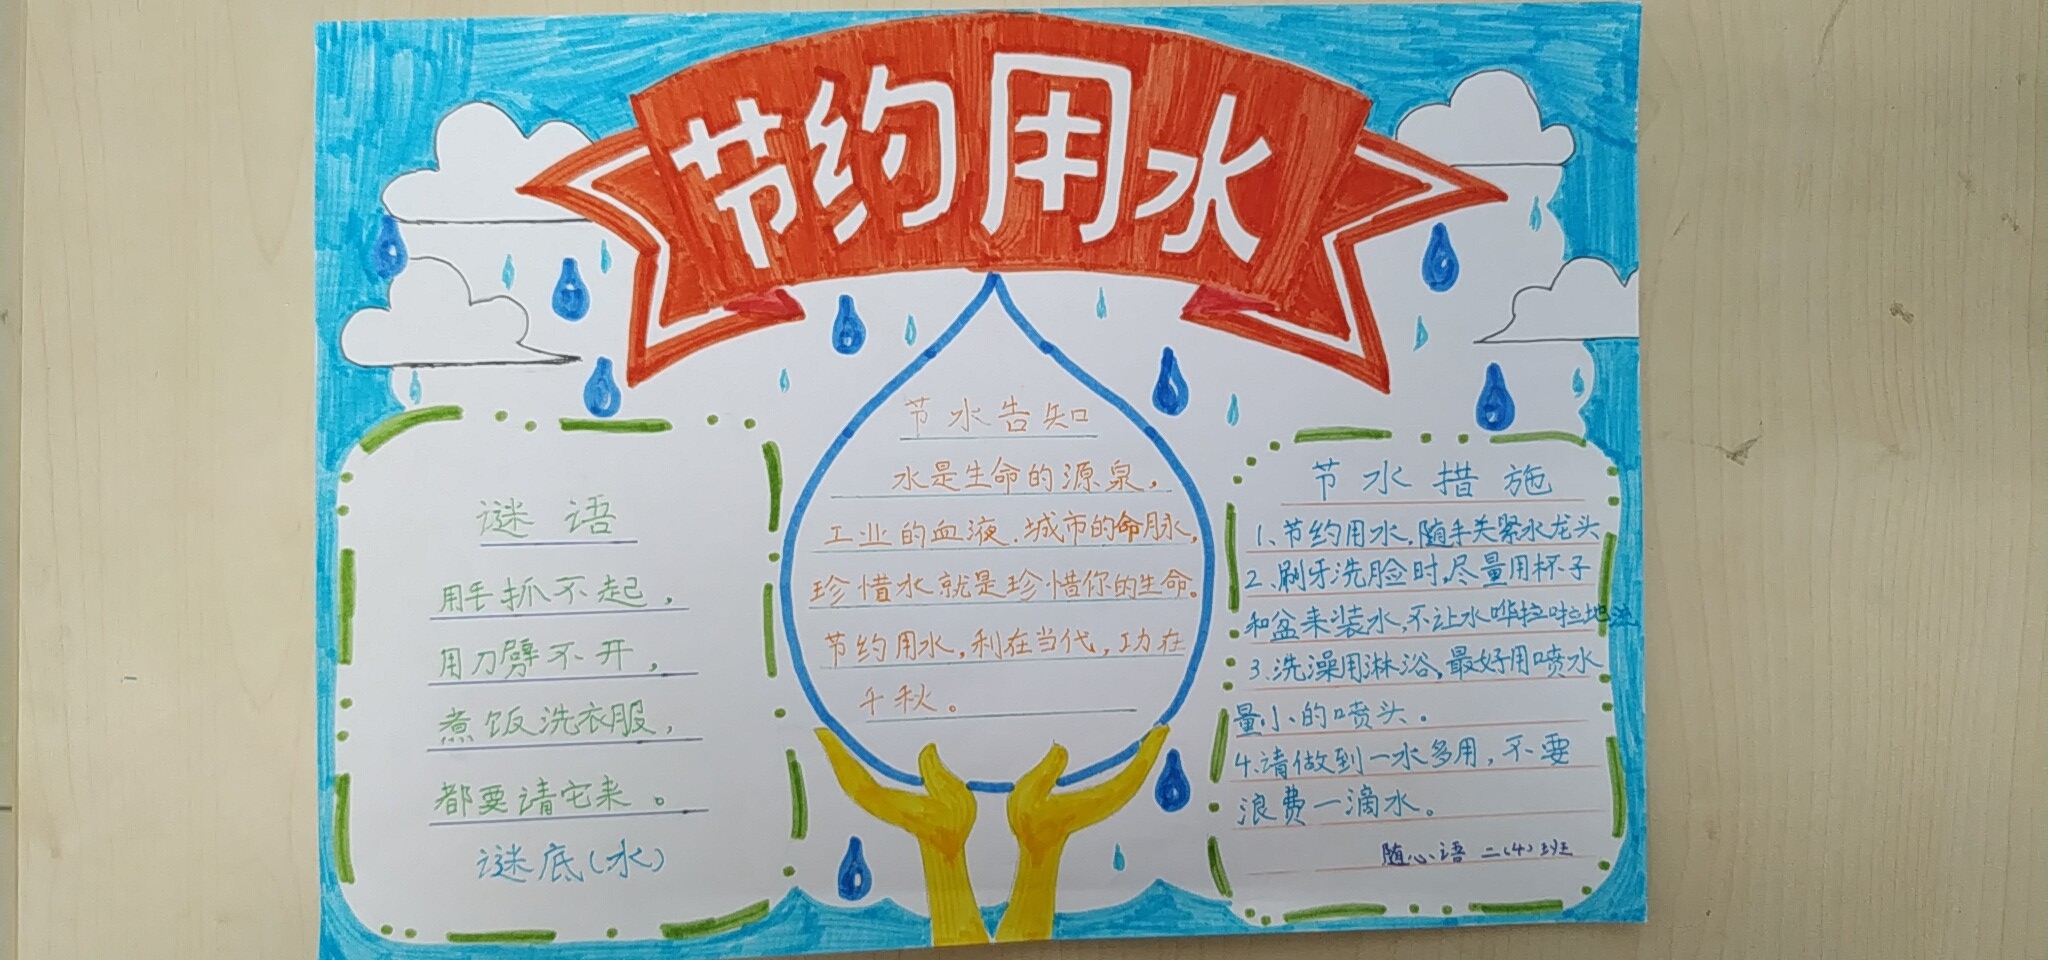 节约用水
谜语
用手抓不起，
用刀劈不开，
煮饭洗衣服，
都要请它来。
谜底(水)
节水告知
水是生命的源泉，
工业的血液.城市的命脉，
珍惜水就是珍惜你的生命。
节约用水，利在当代，功在
千秋。
节水措施
1、节约用水，随手关紧水龙头
2、刷牙洗脸时，尽量用杯子
和盆来装水，不让水哗拉啦地流
3.洗澡用淋浴，最好用喷水
量小的喷头。
4.请做到一水多用，不要
浪费一滴水。
随心语 二(4)班